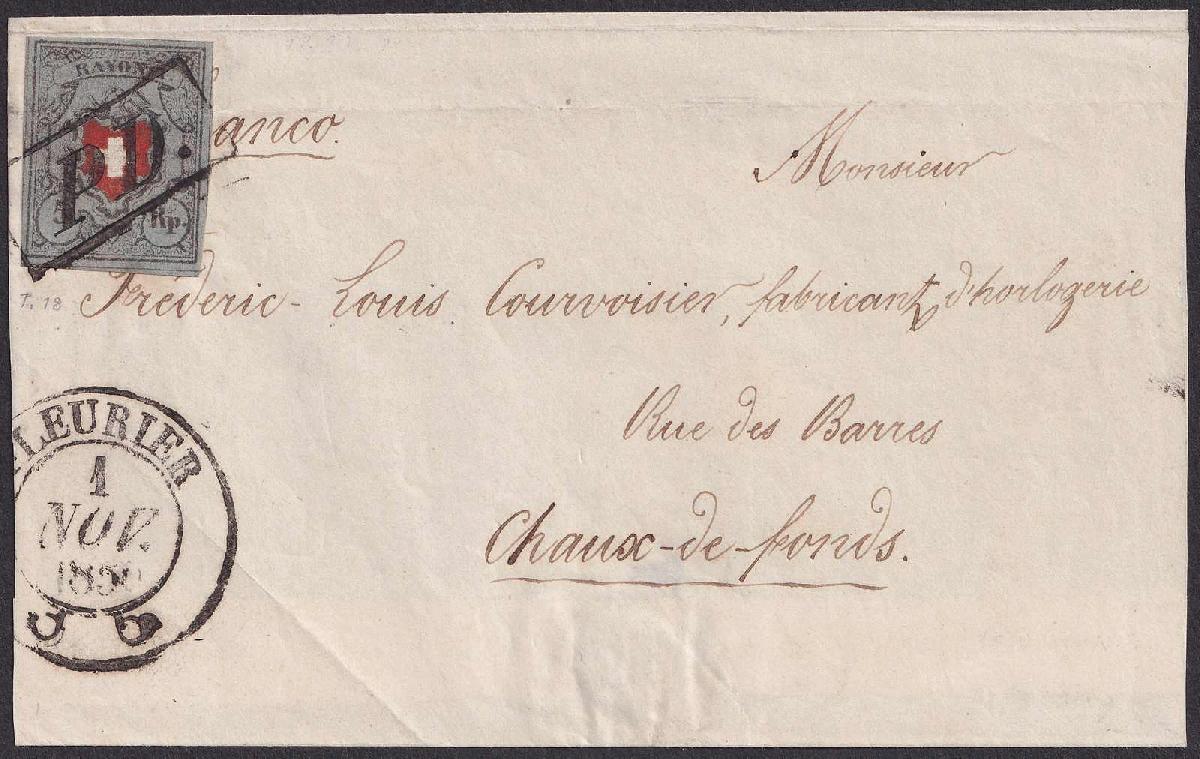 RAYON I
PD.
5 Rp.
anco.
Monsieur
T. 18
Fréderic-Louis Courvoisier, fabricant d'horlogerie
Rue des Barres
Chaux-de-fonds.
LEURIER
1
NOV.
1850